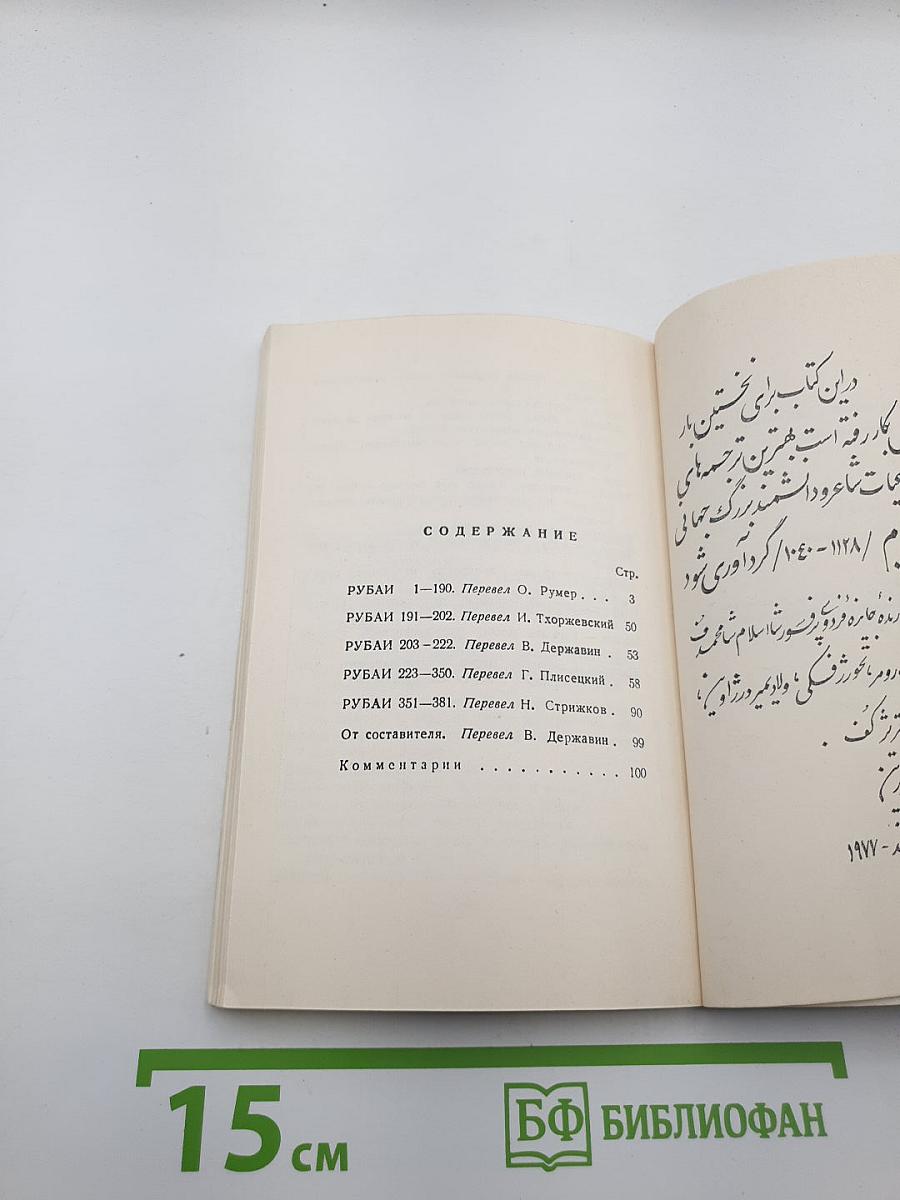 СОДЕРЖАНИЕ
Стр.
РУБАИ 1—190. Перевел О. Румер . . . 3
РУБАИ 191—202. Перевел И. Тхоржевский 50
РУБАИ 203-222. Перевел В. Державин . 53
РУБАИ 223—350. Перевел Г. Плисецкий . 58
РУБАИ 351—381. Перевел Н. Стрижков . 90
От составителя. Перевел В. Державин . 99
Комментарии . . . . . . . . . . . 100
در این کتاب برای نخستین بار
بکار رفته است بهترین ترجمه های
شاعر و دانشمند بزرگ جهانی
/۱۰۴۰-۱۱۲۸/ گرد آوری شود
جایزه فردوسی پرفسور شا اسلام شا محمدف
ولادیمیر درژاوین،
۱۹۷۷-
15 см
БФ БИБЛИОФАН